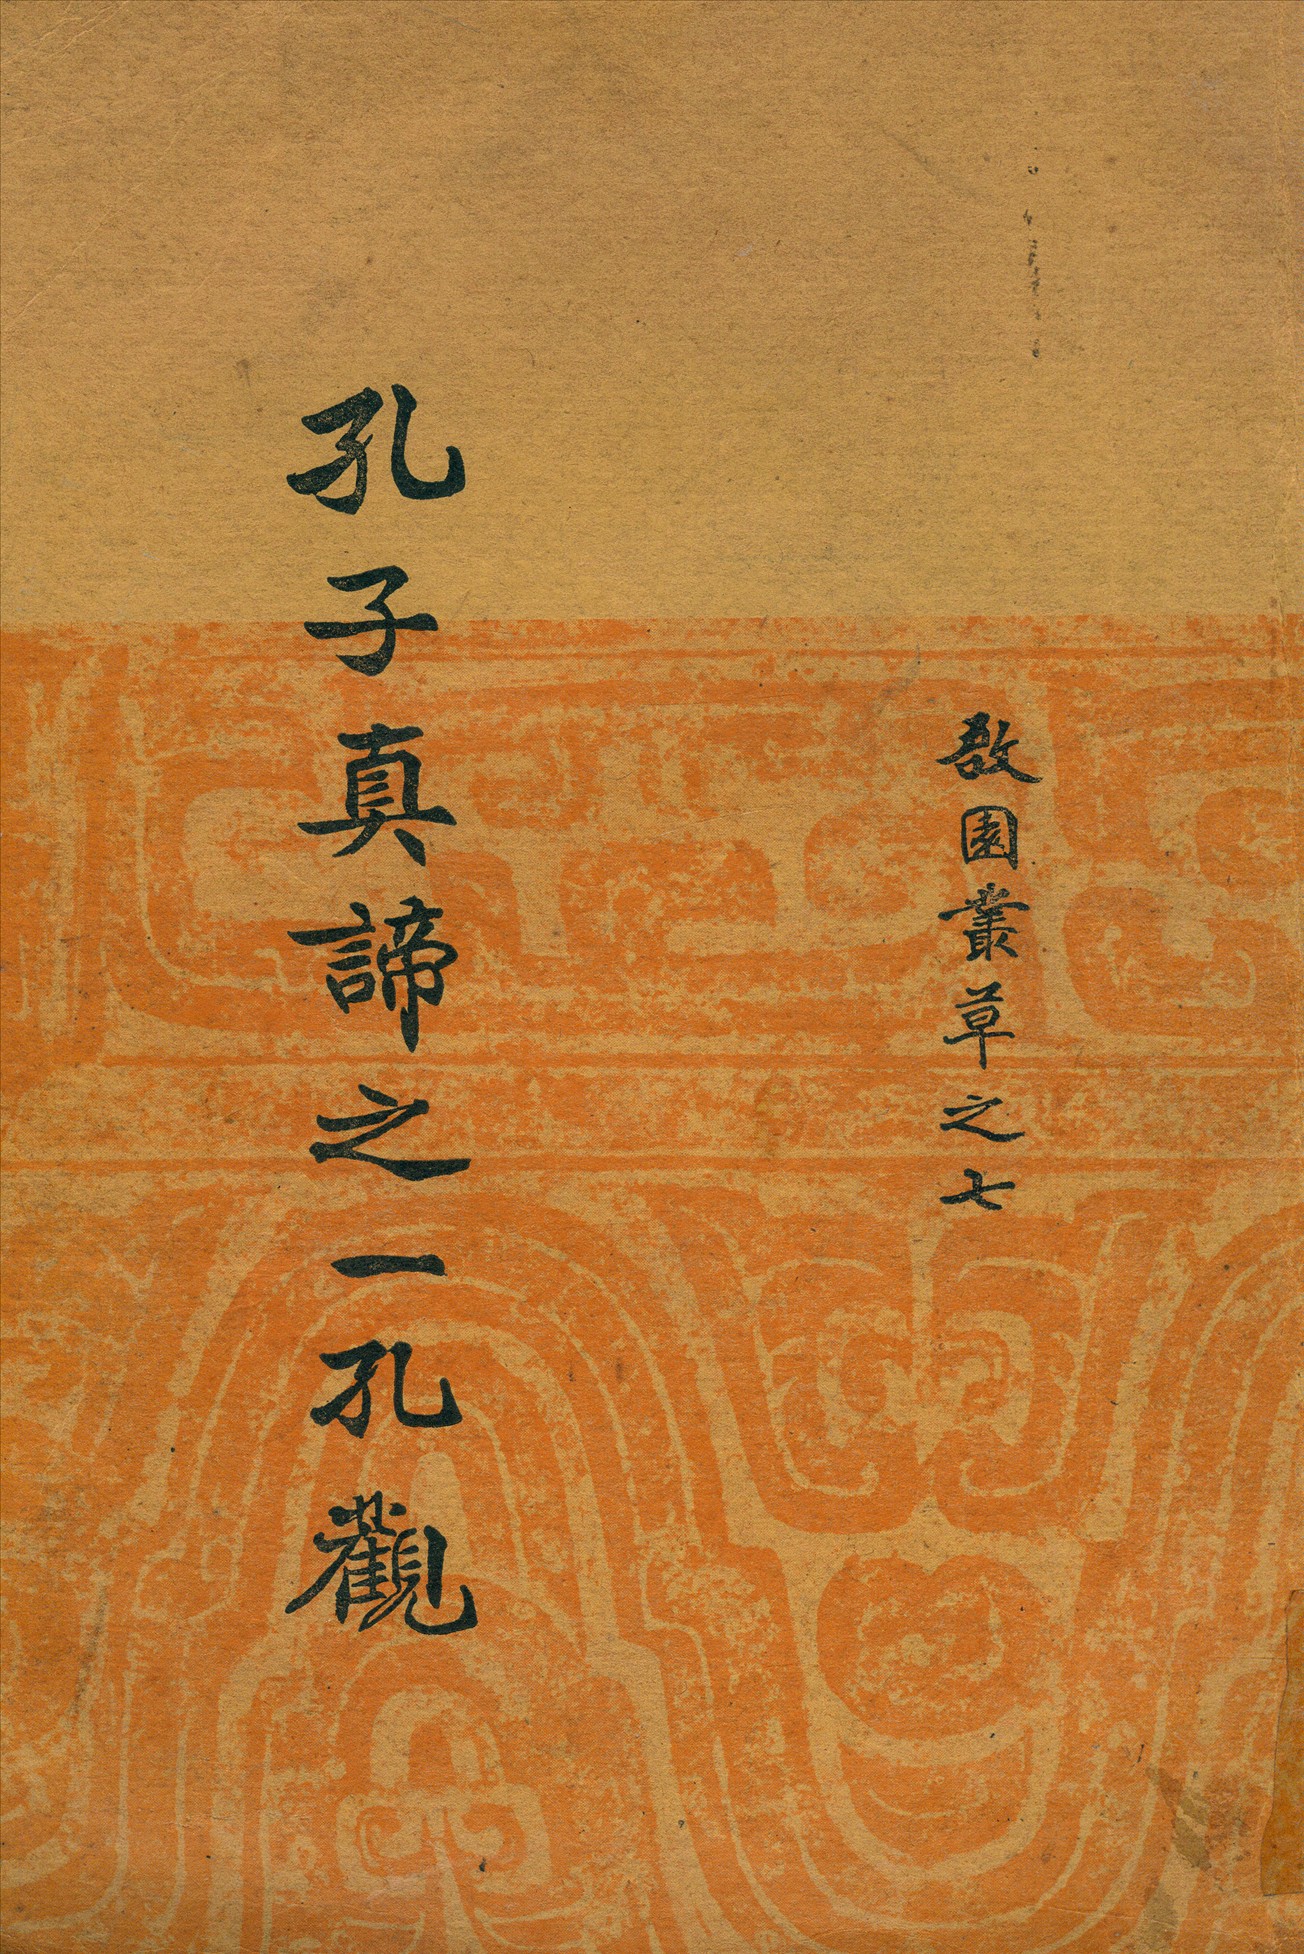 敔園叢草之七
孔子真諦之一孔觀